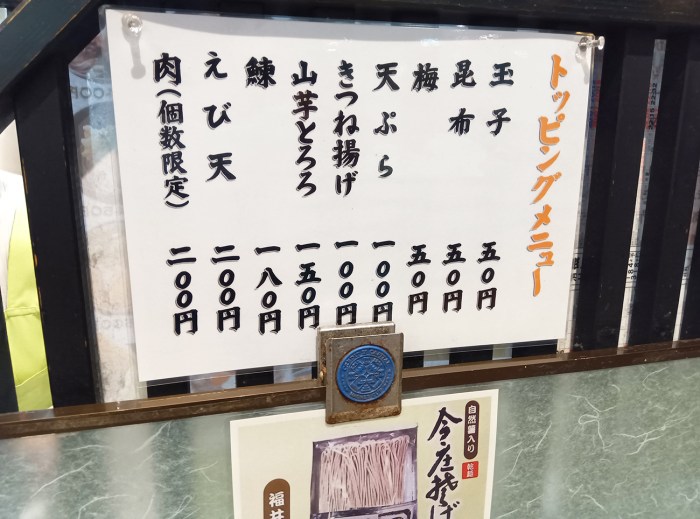 トッピングメニュー
玉子 五〇円
昆布 五〇円
梅 五〇円
天ぷら 一〇〇円
きつね揚げ 一〇〇円
山芋とろろ 一五〇円
鰊 一八〇円
えび天 二〇〇円
肉(個数限定) 二〇〇円
自然薯入り
乾麺
今庄そば
福井